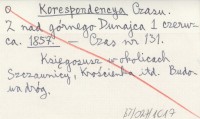 Korespondencya Czasu.
Z nad górnego Dunajca 1 czerw-
ca. 1857. Czas nr 131.
Księgosusz w okolicach
Szczawnicy, Krościenka itd. Budo-
wa dróg.